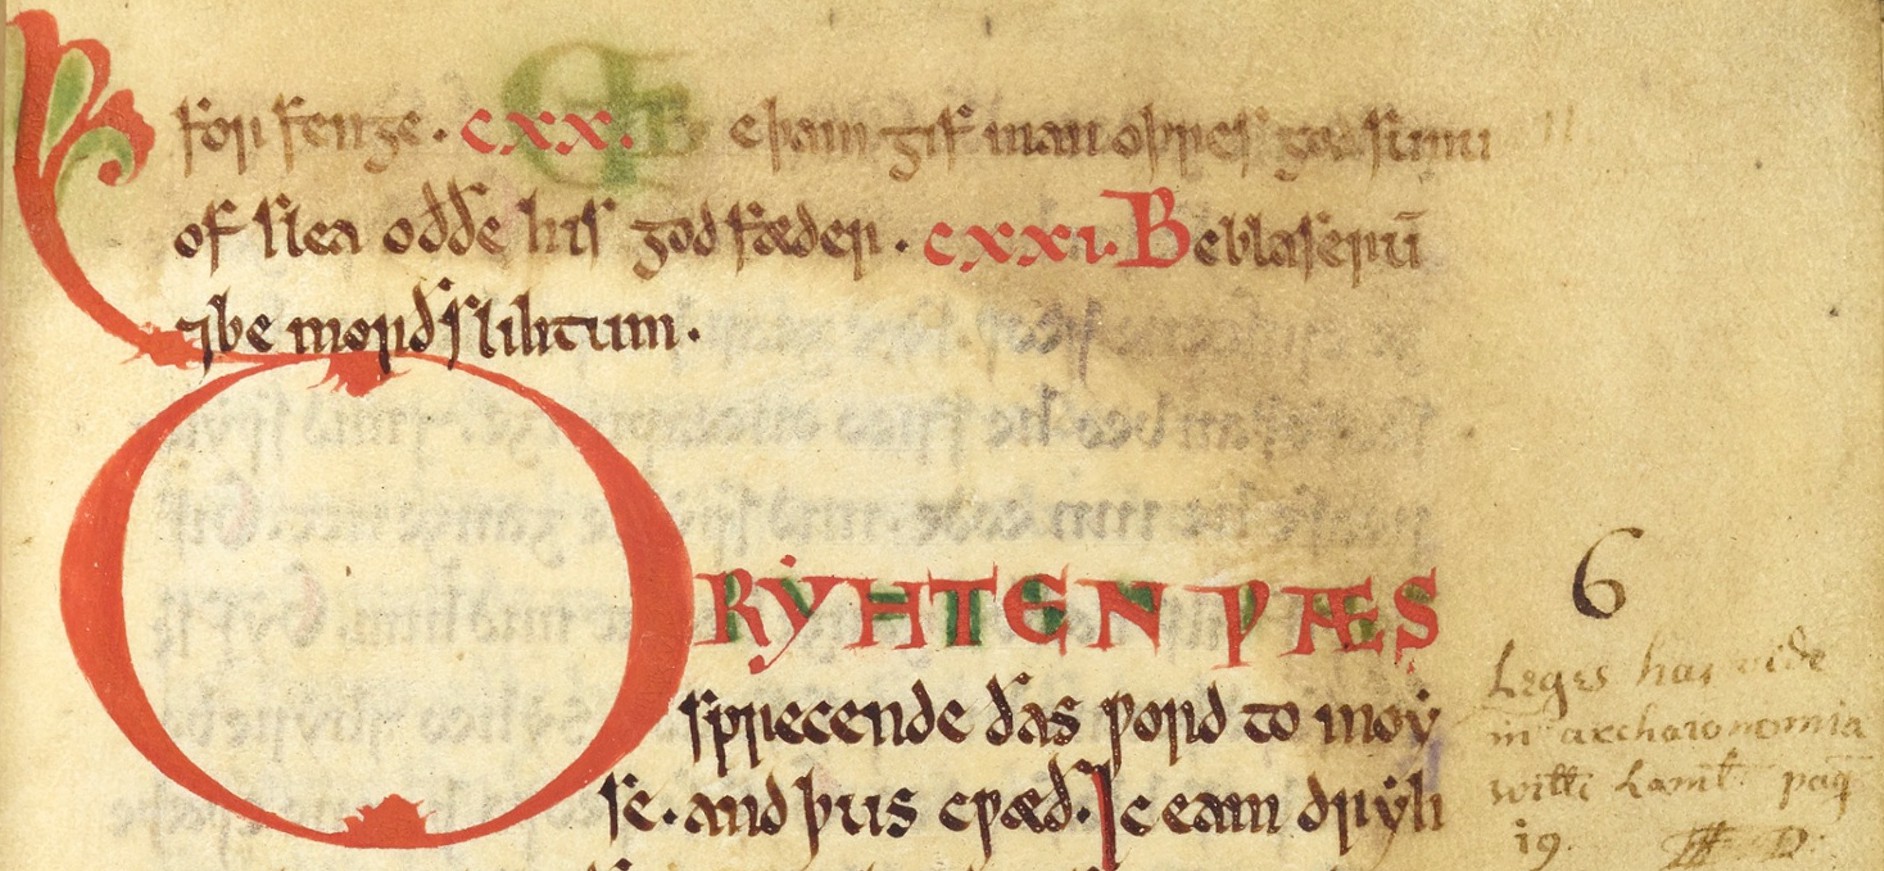 forfenge. cxx. Be þam gif man oþres godsunu
of slea oððe his godfæder. cxxi. Beblaserū
⁊be morðslihtum.
DRẎHTEN ǷÆS
sprecende ðas ƿord to moẏ
se. and þus cƿæð. Ic eam drẏh
6
Leges has vide
in archaionomia
willi Lamb. pag
19.